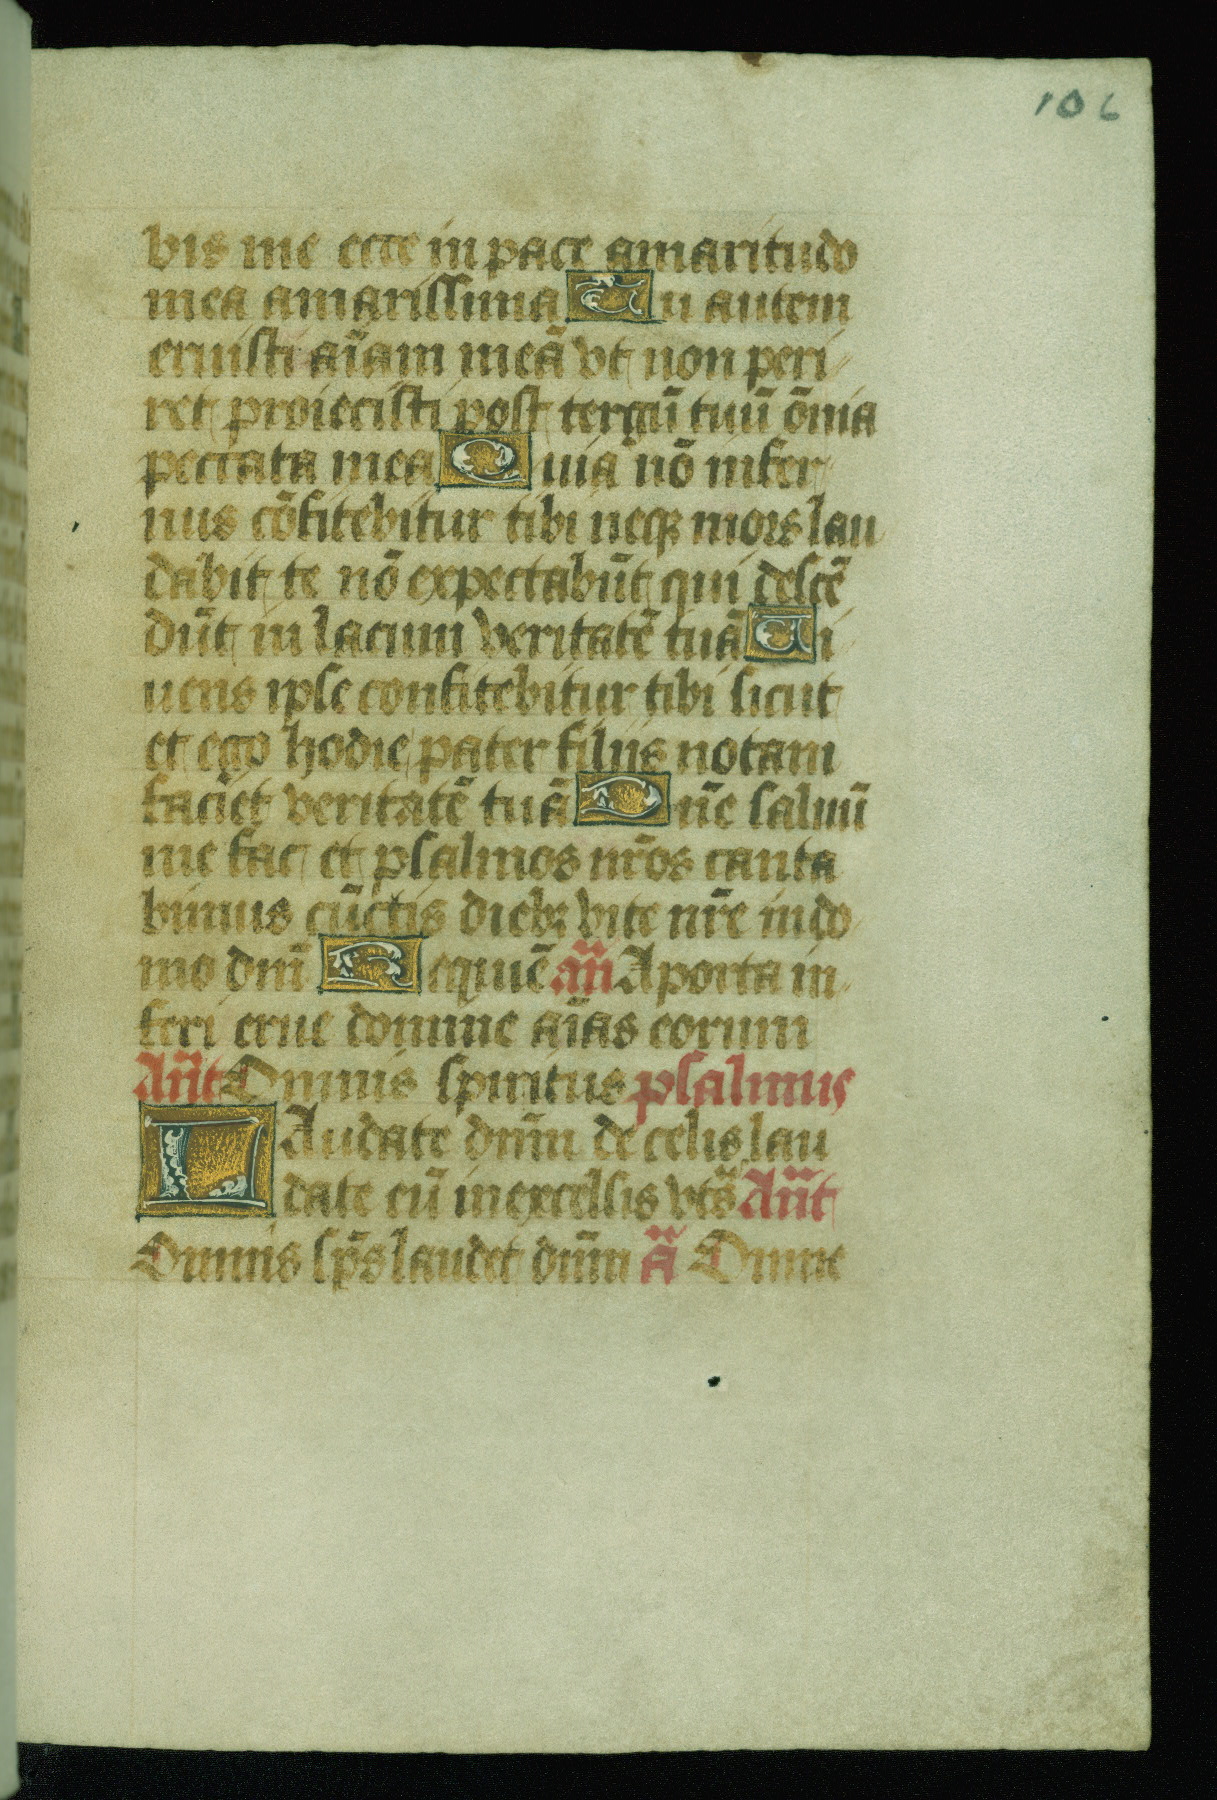 106
bis me ecce in pace amaritudo
mea amarissima Tu autem
eruisti aīam meā vt non peri
ret proiecisti post tergū tuū ōnia
peccata mea Quia nō infer
nus cōfitebitur tibi neqꝫ mors lau
dabit te nō expectabūt qui descē
dūt in lacum veritatē tuā Ui
uens ipse confitebitur tibi sicut
et ego hodie pater filijs notam
faciet veritatē tuā Dn̄e saluū
me fac et psalmos nr̄os canta
bimus cūctis diebꝫ vite nr̄e in do
mo dn̄i Requiē an̄ A porta in
feri erue domine aīas eorum
An̄t Omnis spiritus psalmus
LAudate dn̄m de celis lau
date eū in excelsis vts̄ An̄t
Omnis sp̄s laudet dn̄m ā Omne